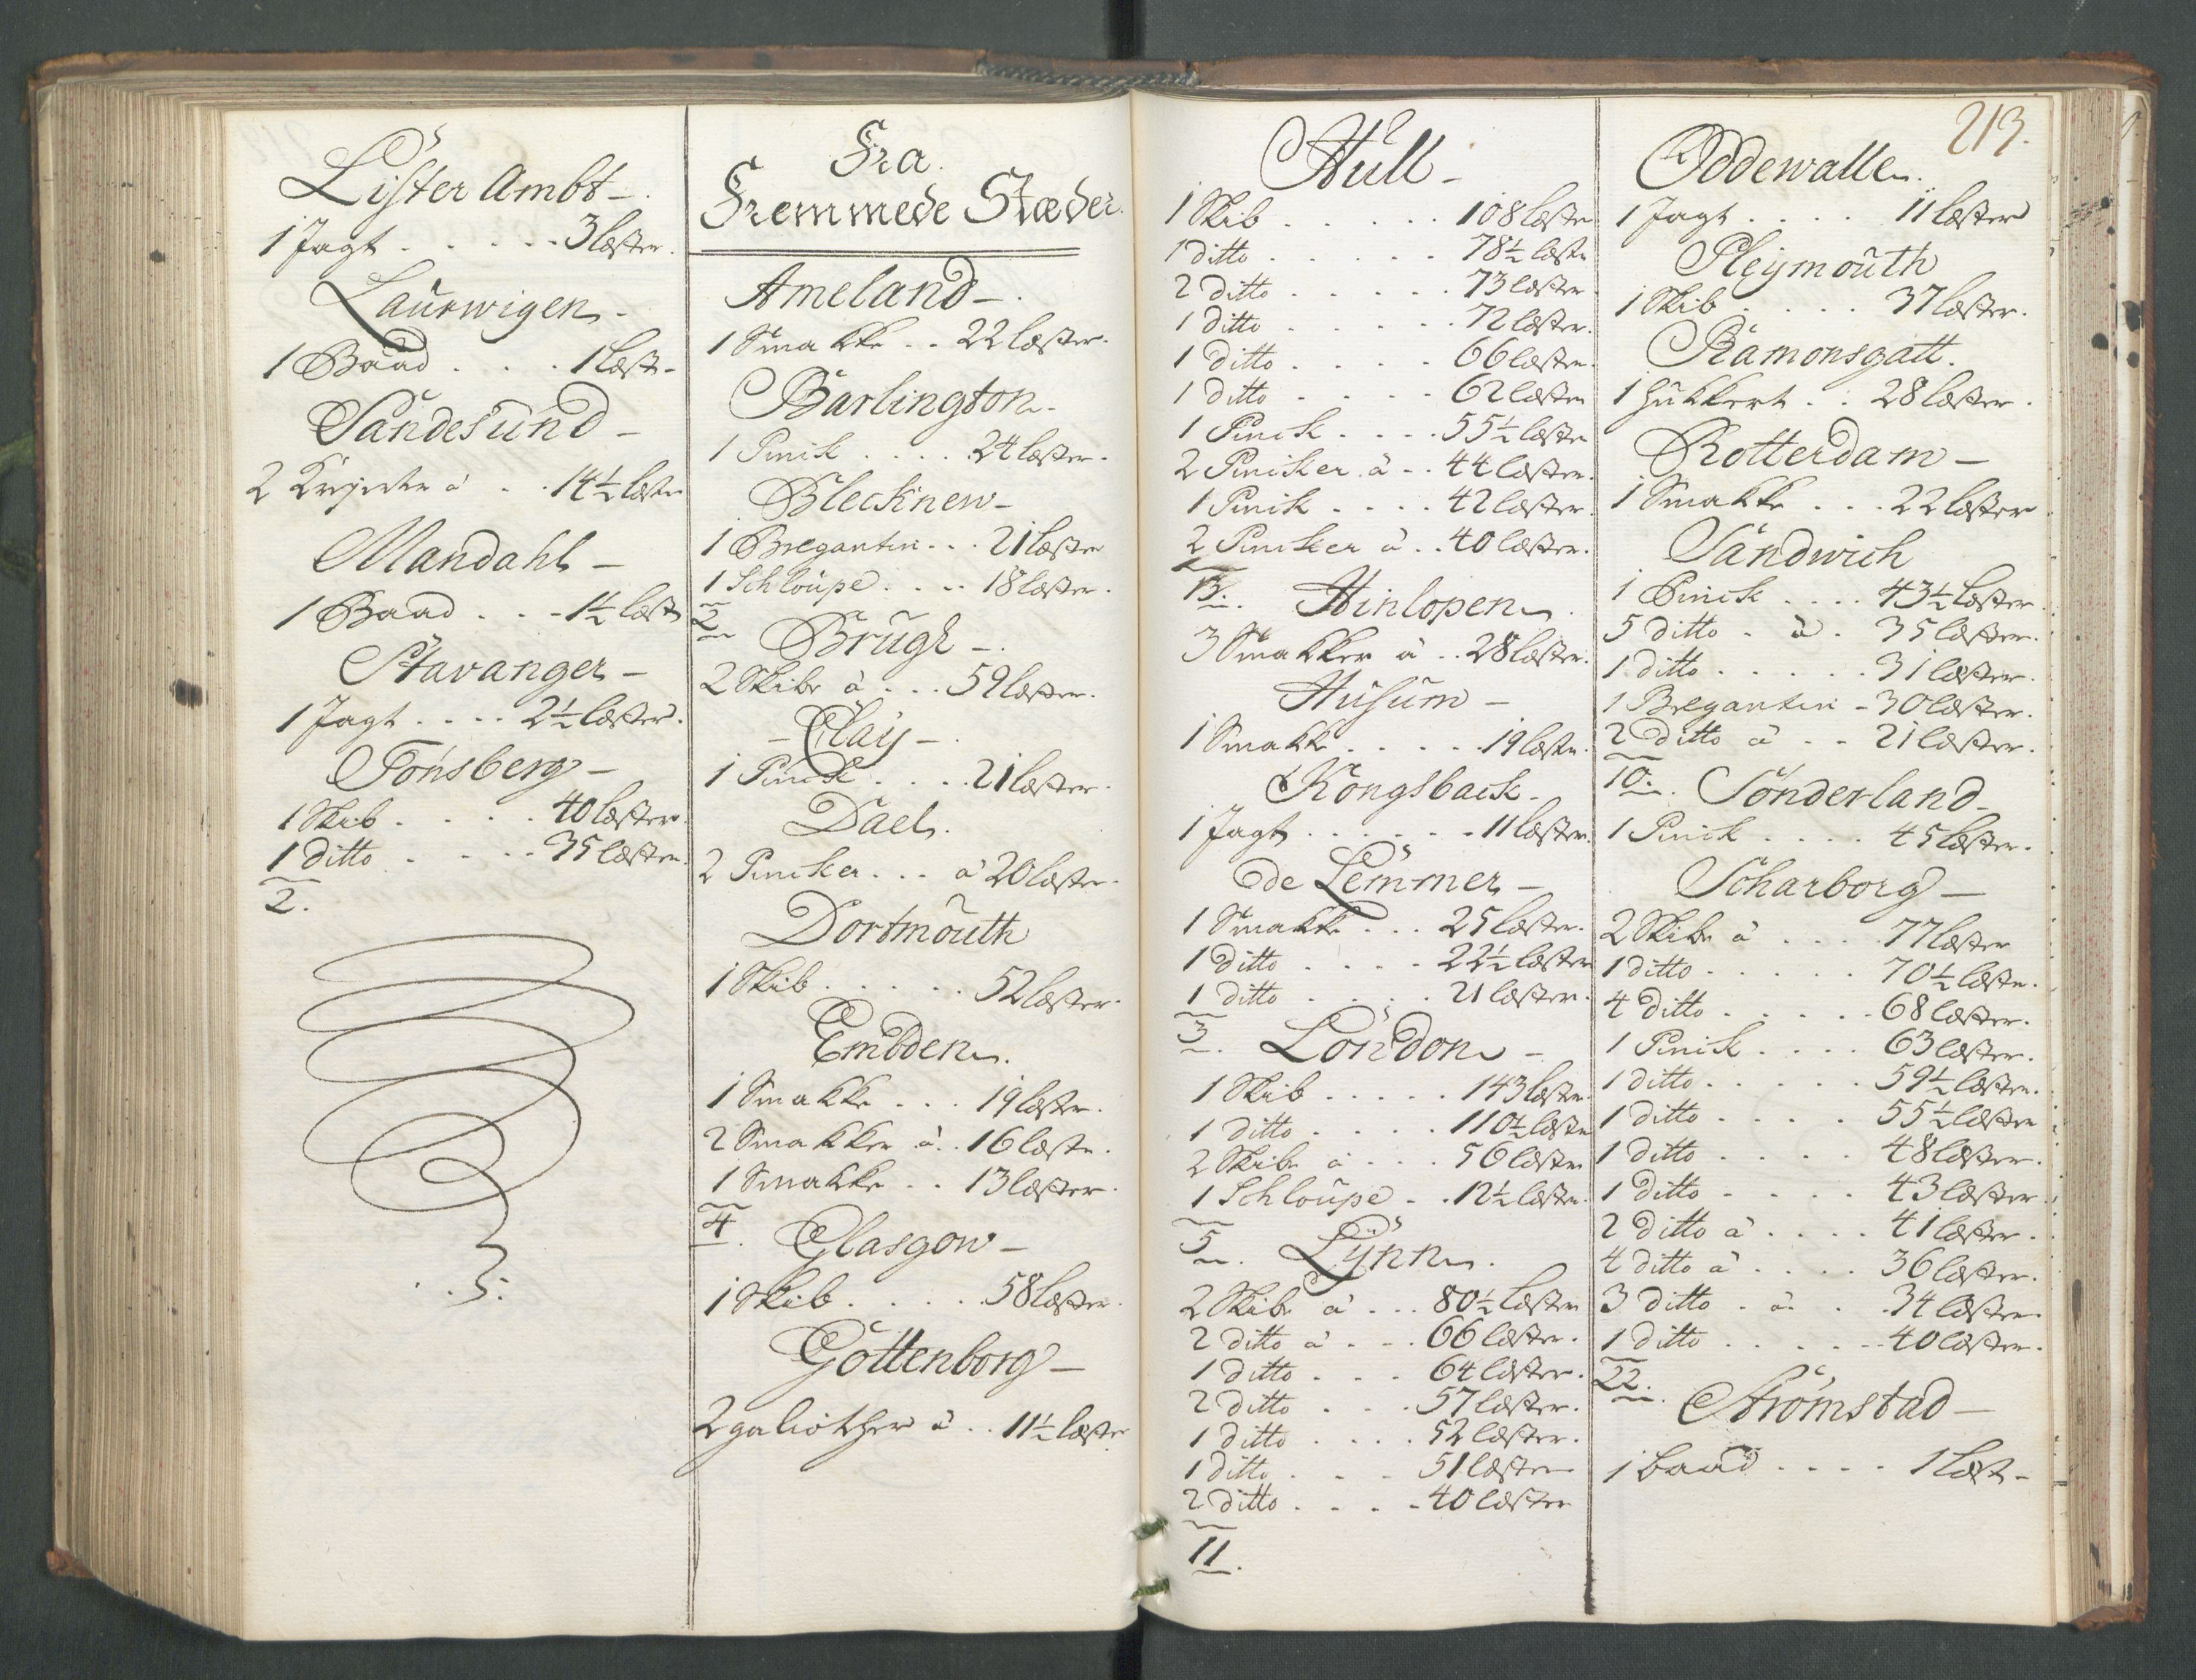 Lister Ambt -
1 Jagt . . . . . 3 læster.
Laurwigen -
1 Baad . . . 1 læst -
Sandesund -
2 à . . 14½ læster
Mandahl -
1 Baad . . - 1½ læst
Stavanger -
1 Jagt . . . . 2½ læster.
Tønsberg -
1 Skib . . . . 40 læster.
1 ditto . . . - 35 læster.
2.
Fra
Fremmede Stæder.
Ameland -
1 Smakke . . 22 læster.
Barlington -
1 Pinik . . . . 24 læster.
Blecknew -
1 Bregantin . . . 21 læster
1 Schloupe . . . . 18 læster.
2
Brugh -
2 Skibe à . . . 59 læster.
- Clay -
1 Pinck . . . 21 læster.
Dael.
2 Pincker . . . à 20 læster.
Dortmouth
1 Skib . . . . . 52 læster.
Embden.
1 Smakke . . . 19 læster.
2 Smakker à . . 16 læster.
1 Smakke . . 13 læster.
4.
Glasgow -
1 Skib . . . . . 58 læster.
Gottenborg -
2 galiother à . . 11½ læster
213.
Hull -
1 Skib . . . . . 108 læster
1 ditto . . . . . 78½ læster
2 ditto . . . . . 73 læster
1 ditto . . . . . 72 læster.
1 ditto . . . . 66 læster.
1 ditto . . . . 62 læster
1 Pinck . . . . 55½ læster
2 Pincker à . . 44 læster.
1 Pinck . . . . 42 læster.
2 Pincker à . . 40 læster.
13.
Hinlopen
3 Smakker à . . 28 læster.
Husum -
1 Smakke . . . . . 19 læster.
Kongsback -
1 Jagt . . . . . . 11 læster.
de Lemmer -
1 Smakke . . . 25 læster.
1 ditto . . . . 22½ læster
1 ditto . . . . 21 læster.
3.
London -
1 Skib . . . . . 143 læster.
1 ditto . . . . 110½ læster
2 Skibe à . . . 56 læster
1 Schloupe . . 12½ læster.
5.
Lynn.
2 Skibe à . . . 80½ læster
2 ditto à . . . 66 læster.
1 ditto . . . 64 læster.
2 ditto . . . 57 læster.
1 ditto . . . . 52 læster.
1 ditto . . . 51 læster
2 ditto . . . . 40 læster
11.
Oddewalle.
1 Jagt . . . . 11 læster
Pleymouth
1 Skib . . . . 37 læster.
Ramonsgatt.
1 Hukkert . . 28 læster.
Rotterdam -
1 Smakke . . . 22 læster
Sandwich
1 Pinck . . . . 43½ læster.
5 ditto . à . 35 læster.
1 ditto . . . . . 31 læster.
1 Bregantin - 30 læster.
2 ditto à . . 21 læster.
10.
Sonderland -
1 Pinck . . . . 45 læster.
Scharborg -
2 Skibe à . . . . 77 læster
1 ditto . . . . . 70½ læster.
4 ditto . . . . . 68 læster.
1 Pinck . . . . 63 læster.
1 ditto . . . . . 59½ læster.
1 ditto . . . . 55½ læster
1 ditto . . . . 48 læster.
1 ditto . . . . 43 læster
2 ditto à . . . . 41 læster.
4 ditto à . . . . 36 læster.
3 ditto . à . . 34 læster.
1 ditto . . . . . 40 læster.
22.
Strømstad -
1 baad . . . . 1 læst -